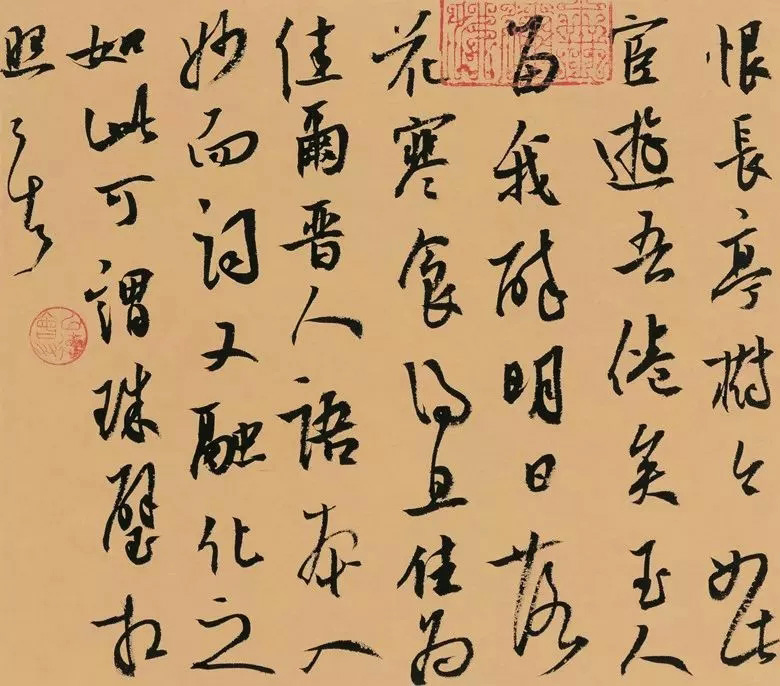 恨長亭樹今如此
宦遊吾倦矣玉人
留我醉明日落
花寒食得且住為
佳爾晋人語本入
妙而詞又融化之
如此可謂珠璧相
照